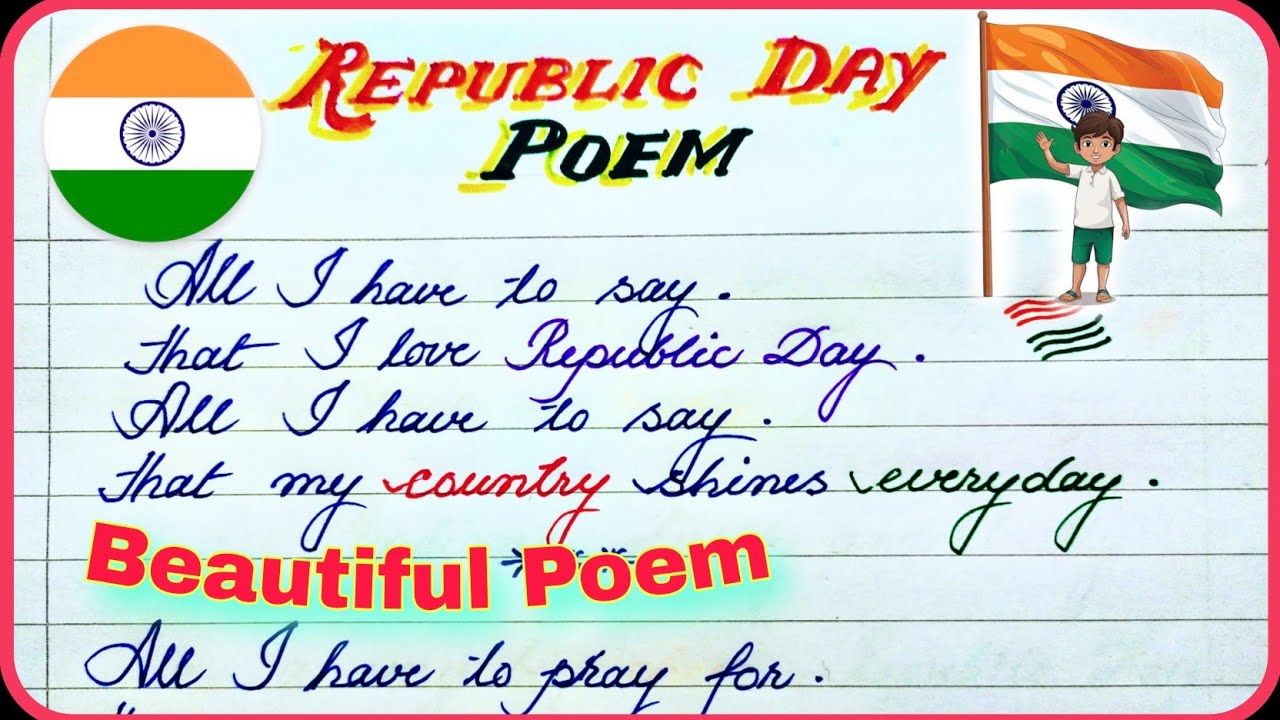 REPUBLIC DAY
POEM
All I have to say.
that I love Republic Day.
All I have to say.
that my country shines everyday.
Beautiful Poem
All I have to pray for.